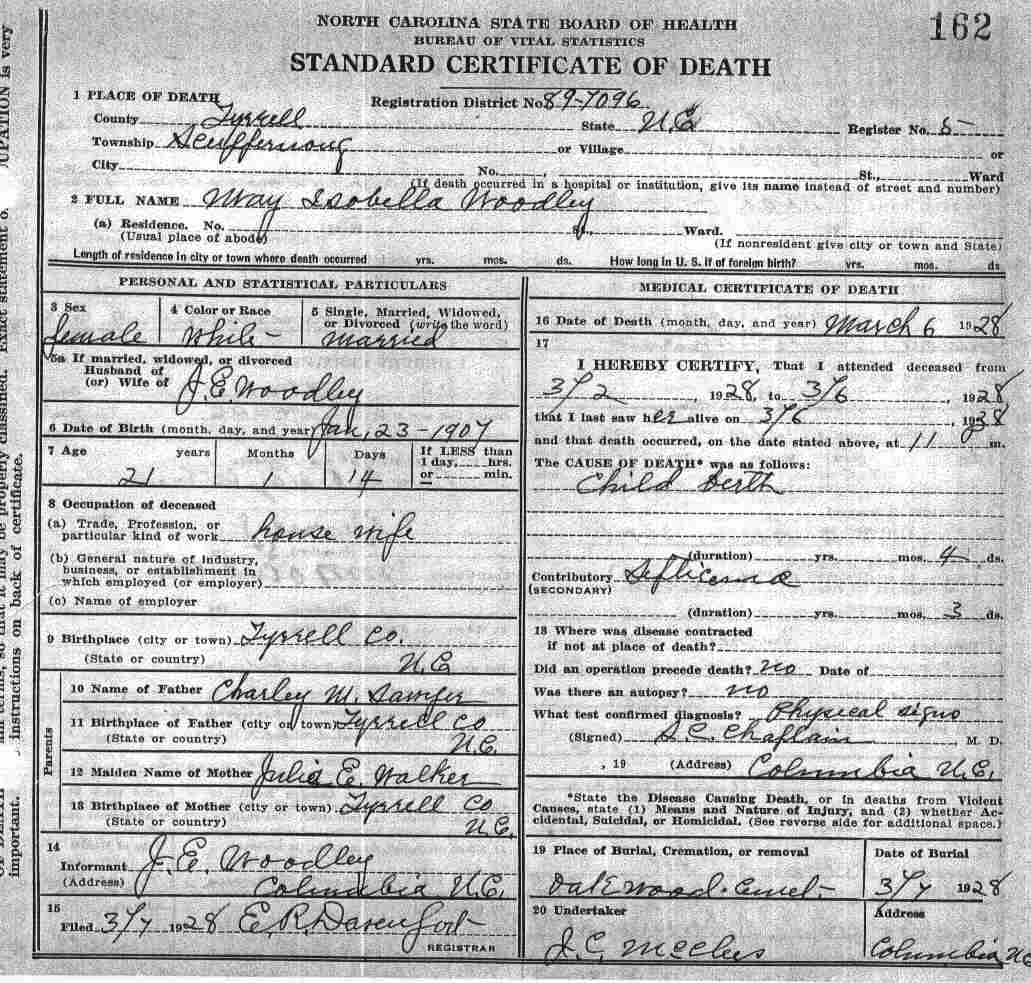 162
NORTH CAROLINA STATE BOARD OF HEALTH
BUREAU OF VITAL STATISTICS
STANDARD CERTIFICATE OF DEATH
1 PLACE OF DEATH
Registration District No. 89-7096
County Tyrrell State N.C. Register No. 5
Township Scuppernong or Village or
City No. St., Ward
(If death occurred in a hospital or institution, give its name instead of street and number)
2 FULL NAME May Isobella Woodley
(a) Residence. No. St., Ward.
(Usual place of abode) (If nonresident give city or town and State)
Length of residence in city or town where death occurred yrs. mos. ds. How long in U. S. if of foreign birth? yrs. mos. ds
PERSONAL AND STATISTICAL PARTICULARS
3 Sex female
4 Color or Race White
5 Single, Married, Widowed,
or Divorced (write the word)
married
5a If married, widowed, or divorced
Husband of
(or) Wife of J. E Woodley
6 Date of Birth (month, day, and year) Jan, 23-1907
7 Age 21 years 1 Months 14 Days
If LESS than
1 day, hrs.
or min.
8 Occupation of deceased
(a) Trade, Profession, or
particular kind of work house wife
(b) General nature of industry,
business, or establishment in
which employed (or employer)
(c) Name of employer
9 Birthplace (city or town) Tyrrell Co.
(State or country) N.C
Parents
10 Name of Father Charley M. Sawyer
11 Birthplace of Father (city or town) Tyrrell Co
(State or country) N.C.
12 Maiden Name of Mother Julia E. Walker
13 Birthplace of Mother (city or town) Tyrrell Co
(State or country) N.C.
14
Informant J. E. Woodley
(Address) Columbia N.C.
15
Filed 3/7 1928 E. R. Davenport
REGISTRAR
MEDICAL CERTIFICATE OF DEATH
16 Date of Death (month, day, and year) March 6 1928
17
I HEREBY CERTIFY, That I attended deceased from
3/2, 1928, to 3/6, 1928
that I last saw her alive on 3/6, 1928
and that death occurred, on the date stated above, at 11 m.
The CAUSE OF DEATH* was as follows:
Child berth
(duration) yrs. mos. 4 ds.
Contributory Septicema
(SECONDARY)
(duration) yrs. mos. 3 ds.
18 Where was disease contracted
if not at place of death?
Did an operation precede death? no Date of
Was there an autopsy? no
What test confirmed diagnosis? Physical signs
(Signed) S. C. Chaplain, M. D.
, 19 (Address) Columbia N.C.
*State the Disease Causing Death, or in deaths from Violent
Causes, state (1) Means and Nature of Injury, and (2) whether Ac-
cidental, Suicidal, or Homicidal. (See reverse side for additional space.)
19 Place of Burial, Cremation, or removal
Oakwood Cemet-
Date of Burial
3/7 1928
20 Undertaker
J. C. McClees
Address
Columbia NC
UPATION is very
Exact statement o
so that it may be properly classified.
instructions on back of certificate.
OF DEATH
important.